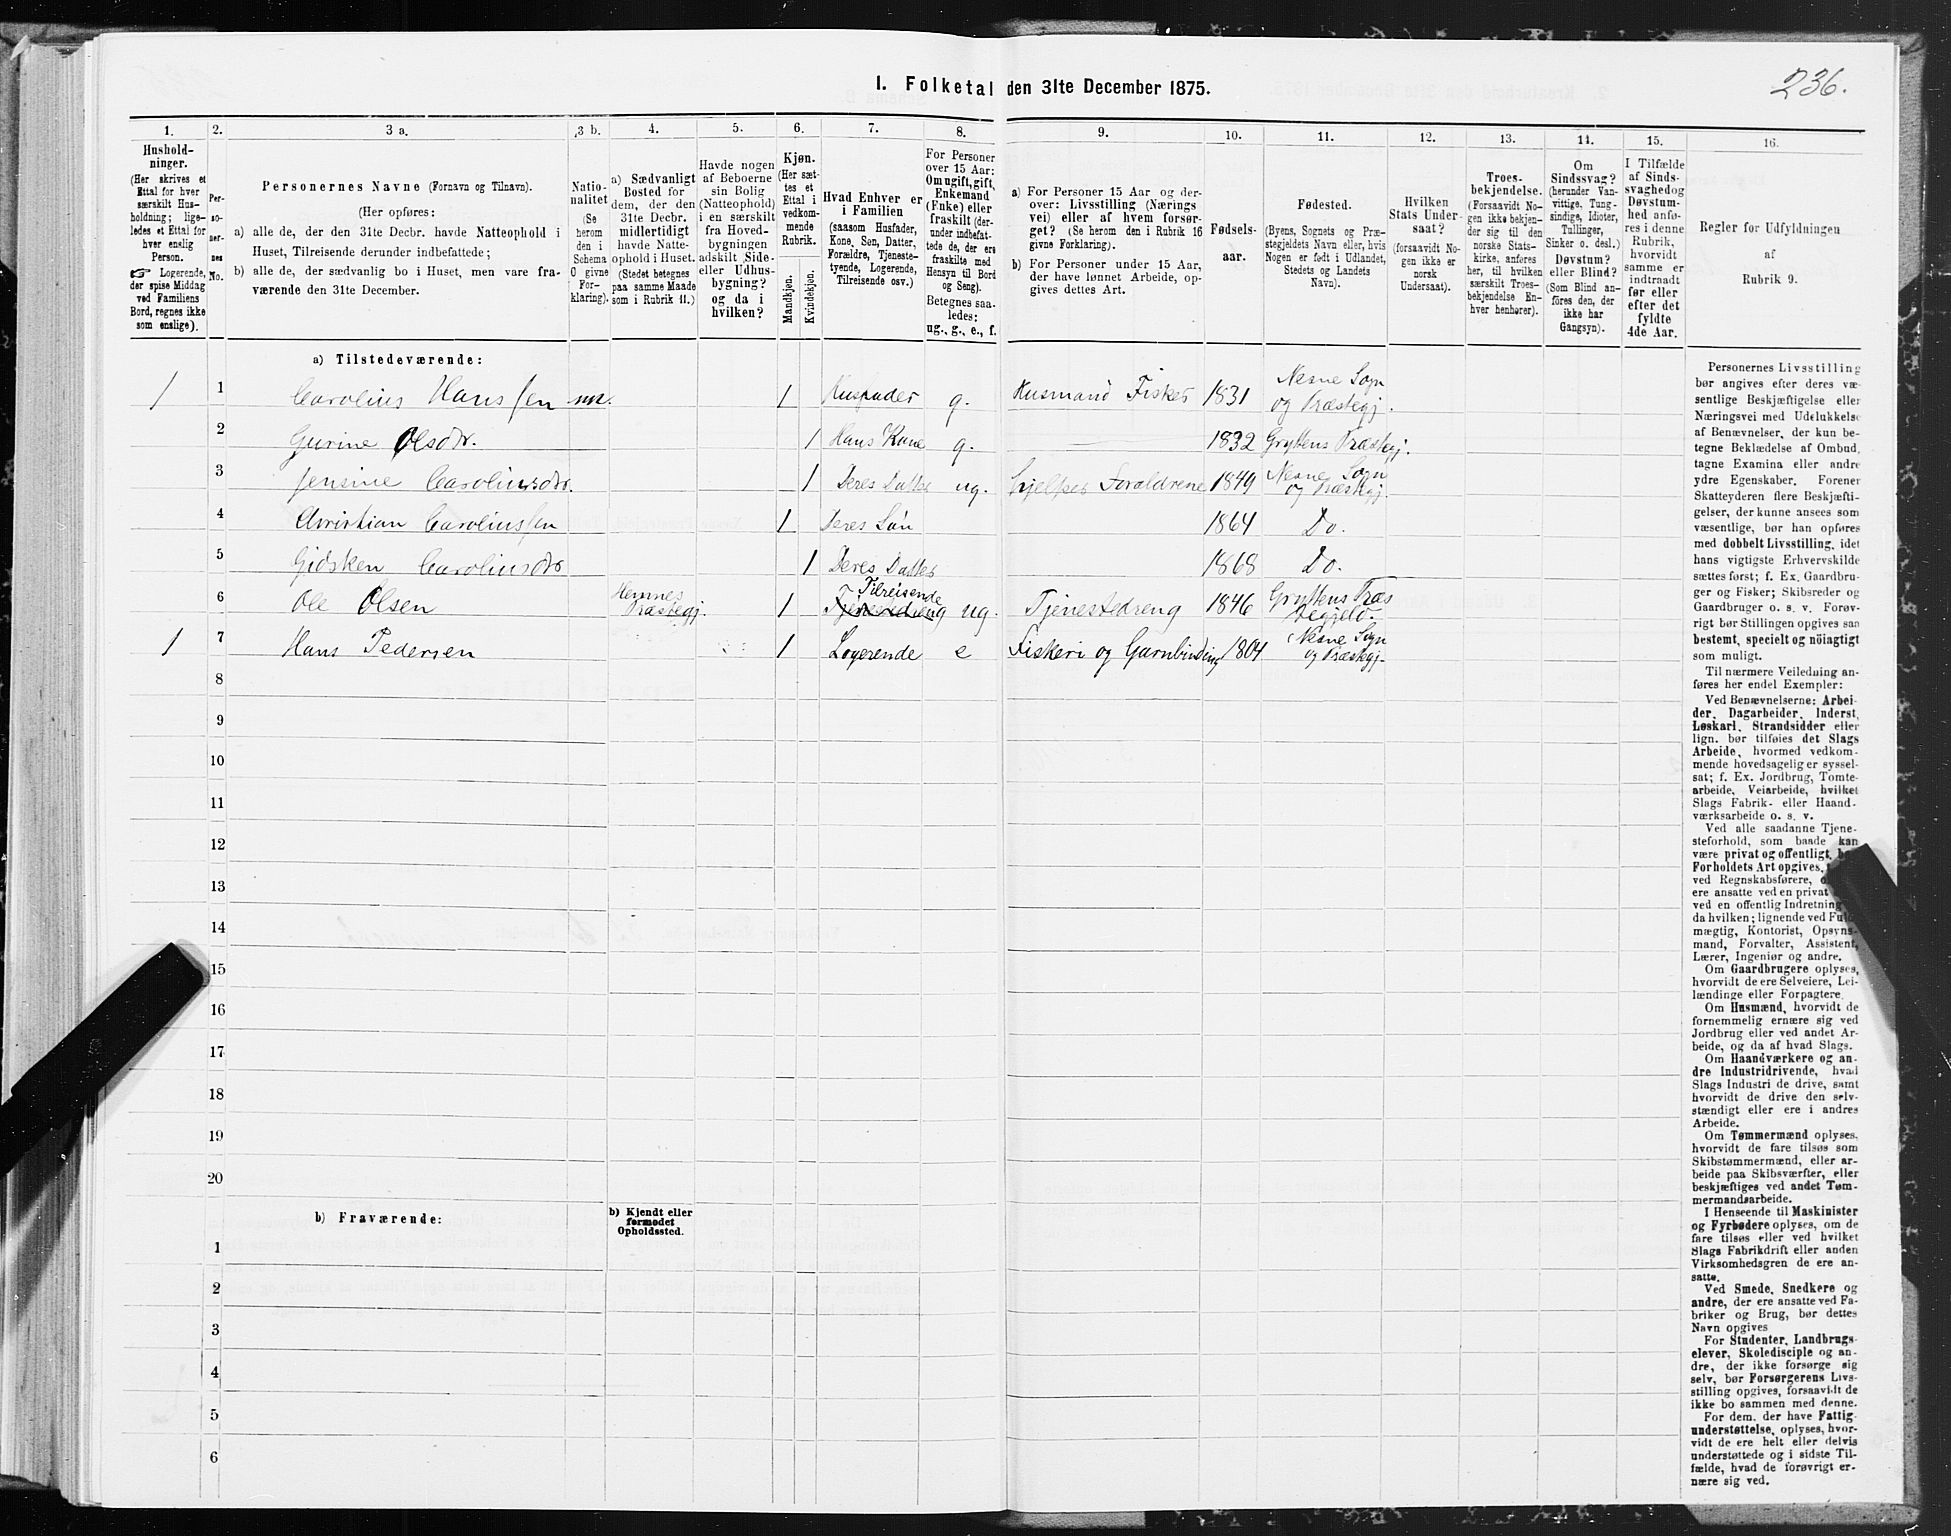 236.
I. Folketal den 31te December 1875.
1. 2. 3 a. 3 b. 4. 5. 6. 7. 8. 9. 10. 11. 12. 13. 14. 15. 16.
Hushold-
ninger.
(Her skrives et
Ettal for hver
særskilt Hus-
holdning; lige-
ledes et Ettal for
hver enslig
Person.
☞ Logerende,
der spise Middag
ved Familiens
Bord, regnes ikke
som enslige).
Per-
so-
ner-
nes
No.
Personernes Navne (Fornavn og Tilnavn).
(Her opføres:
a) alle de, der den 31te Decbr. havde Natteophold i
Huset, Tilreisende derunder indbefattede;
b) alle de, der sædvanlig bo i Huset, men vare fra-
værende den 31te December.
Natio-
nalitet
(Se
herom
den i
Schema
O givne
For-
klaring).
a) Sædvanligt
Bosted for
dem, der den
31te Decbr.
midlertidigt
havde Natte-
ophold i Huset.
(Stedet betegnes
paa samme Maade
som i Rubrik 11.)
Havde nogen
af Beboerne
sin Bolig
(Natteophold)
i en særskilt
fra Hoved-
bygningen
adskilt Side-
eller Udhus-
bygning?
og da i
hvilken?
Kjøn.
(Her sæt-
tes et
Ettal i
vedkom-
mende
Rubrik.
Mandkjøn.
Kvindekjøn.
Hvad Enhver er
i Familien
(saasom Husfader,
Kone, Søn, Datter,
Forældre, Tjeneste-
tyende, Logerende,
Tilreisende osv.)
For Personer
over 15 Aar:
Om ugift, gift,
Enkemand
(Enke) eller
fraskilt (der-
under indbefat-
tede de, der ere
fraskilte med
Hensyn til Bord
og Seng).
Betegnes saa-
ledes:
ug., g., e., f.
a) For Personer 15 Aar og der-
over: Livsstilling (Nærings
vei) eller af hvem forsør-
get? (Se herom den i Rubrik 16
givne Forklaring).
b) For Personer under 15 Aar,
der have lønnet Arbeide, op-
gives dettes Art.
Fødsels-
aar.
Fødested.
(Byens, Sognets og Præ-
stegjeldets Navn eller, hvis
Nogen er født i Udlandet,
Stedets og Landets
Navn).
Hvilken
Stats Under-
saat?
(forsaavidt No-
gen ikke er
norsk
Undersaat).
Troes-
bekjendelse.
(Forsaavidt No-
gen ikke bekjen-
der sig til den
norske Stats-
kirke, anføres
her, til hvilken
særskilt Troes-
bekjendelse En-
hver henhører).
Om
Sindssvag?
(herunder Van-
vittige, Tung-
sindige, Idioter,
Tullinger,
Sinker o. desl.)
Døvstum?
eller Blind?
(Som Blind an-
føres den, der
ikke har
Gangsyn).
I Tilfælde
af Sinds-
svaghed og
Døvstum-
hed anfø-
res i denne
Rubrik,
hvorvidt
samme er
indtraadt
før eller
efter det
fyldte
4de Aar.
Regler for Udfyldningen
af
Rubrik 9.
a) Tilstedeværende:
1 1 Carolius Hanssen nn. 1 Husfader g. Husmand Fisker 1831 Nesne Sogn og Præstegj.
2 Gurine Olsdr. 1 Hans Kone g. 1832 Gryttens Præstegj.
3 Jensine Caroliusdr. 1 Deres Datter ug. hjelper Forældrene 1849 Nesne Sogn og Præstegj.
4 Christian Caroliussen 1 Deres Søn 1864 Do.
5 Gidsken Caroliusdr 1 Deres Datter 1868 Do.
6 Ole Olsen Hemnes Præstegj. 1 Tilreisende Tjenestedreng ug. Tjenestedreng 1846 Gryttens Præstegjeld.
1 7 Hans Pedersen 1 Logerende e Fiskeri og Garnbinding 1804 Nesne Sogn og Præstegj.
8
9
10
11
12
13
14
15
16
17
18
19
20
b) Fraværende:
b) Kjendt eller
formodet
Opholdssted.
1
2
3
4
5
6
Personernes Livsstilling
bør angives efter deres væ-
sentlige Beskjæftigelse eller
Næringsvei med Udelukkelse
af Benævnelser, der kun be-
tegne Beklædelse af Ombud,
tagne Examina eller andre
ydre Egenskaber. Forener
Skatteyderen flere Beskjæfti-
gelser, der kunne ansees som
væsentlige, bør han opføres
med dobbelt Livsstilling, idet
hans vigtigste Erhvervskilde
sættes først; f. Ex. Gaardbru-
ger og Fisker; Skibsreder og
Gaardbruger o. s. v. Forøv-
rigt bør Stillingen opgives saa
bestemt, specielt og nöiagtigt
som muligt.
Til nærmere Veiledning an-
føres her endel Exempler:
Ved Benævnelserne: Arbei-
der, Dagarbeider, Inderst,
Løskarl, Strandsidder eller
lign. bør tilføies det Slags
Arbeide, hvormed vedkom-
mende hovedsagelig er syssel-
sat; f. Ex. Jordbrug, Tomte-
arbeide, Veiarbeide, hvilket
Slags Fabrik- eller Haand-
værksarbeide o. s. v.
Ved alle saadanne Tjene-
steforhold, som baade kan
være privat og offentligt,
Forholdets Art opgives,
ved Regnskabsførere,
ere ansatte ved en privat
ved en offentlig Indretning
da hvilken; lignende ved Fuld-
mægtig, Kontorist, Opsyns-
mand, Forvalter, Assistent,
Lærer, Ingeniør og andre.
Om Gaardbrugere oplyses,
hvorvidt de ere Selveiere, Lei-
lændinge eller Forpagtere.
Om Husmænd, hvorvidt de
fornemmelig ernære sig ved
Jordbrug eller ved andet Ar-
beide, og da af hvad Slags.
Om Haandværkere og an-
dre Industridrivende, hvad
Slags Industri de drive, samt
hvorvidt de drive den selv-
stændigt eller ere i andres
Arbeide.
Om Tømmermænd oplyses,
hvorvidt de fare tilsøs som
Skibstømmermænd, eller ar-
beide paa Skibsværfter, eller
beskjæftiges ved andet Tøm-
mermandsarbeide.
I Henseende til Maskinister
og Fyrbødere oplyses, om de
fare tilsøs eller ved hvilket
Slags Fabrikdrift eller anden
Virksomhedsgren de ere an-
satte.
Ved Smede, Snedkere og
andre, der ere ansatte ved Fa-
briker og Brug, bør dettes
Navn opgives
For Studenter, Landbrugs-
elever, Skoledisciple og an-
dre, der ikke forsørge sig
selv, bør Forsørgerens Livs-
stilling opgives, forsaavidt de
ikke bo sammen med denne.
For dem, der have Fattig-
understøttelse, oplyses, hvor-
vidt de ere helt eller delvis
understøttede og i sidste Til-
fælde, hvad de forøvrigt er-
nære sig ved.